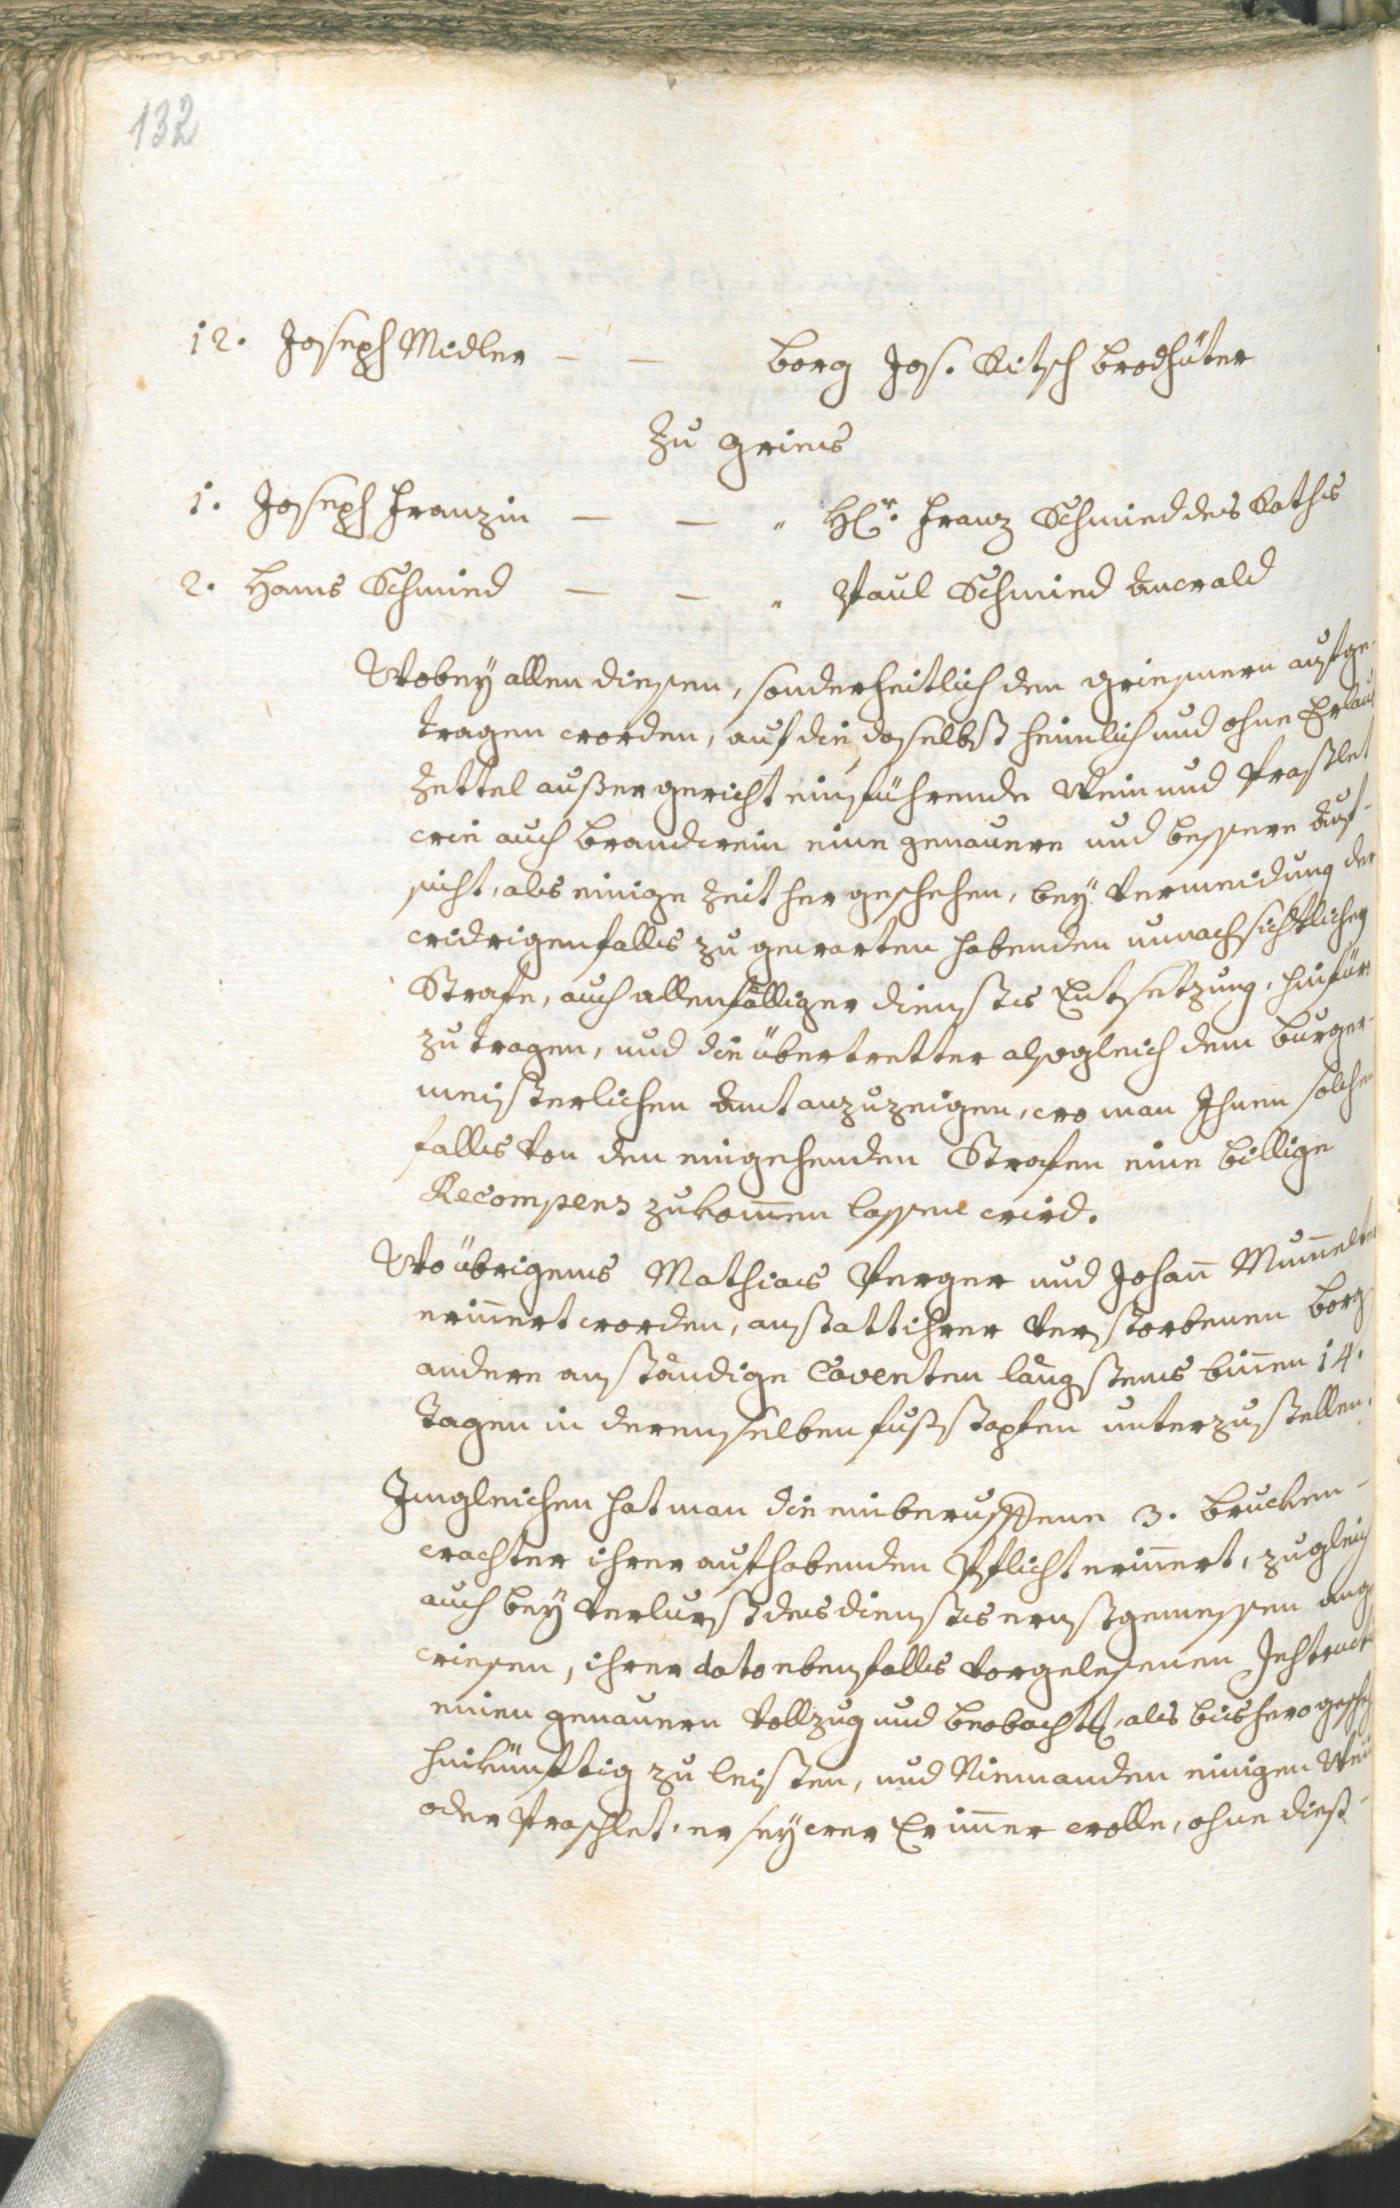 132
12. Joseph Midler — — borg Jos. Kitsch brodhüter
zu Gries
1. Joseph Franzin — — " H[er]r. Franz Schmied des Raths
2. Hanns Schmied — — " Paul Schmied Anwald
Wobey allen diesen, sonderheitlich den Griesnern aufge-
tragen worden, auf die daselbst heimlich und ohne Erlaub
zettel außer gericht einführende Wein und Praßlet
wie auch brandwein eine genauere und bessere Auf-
sicht, als einige Zeit her geschehen, bey Vermeidung der
widrigenfalls zu gewarten habenden unnachsichtlichen
Strafe, auch allenfälliger dienstes Entsetzung, hinfür
zu tragen, und die übertretter alsogleich dem burger-
meisterlichen Amt anzuzeigen, wo man Ihnen solchen
falls von den eingehenden Strafen eine billige
Recompens zukommen lassen wird.
Wo übrigens Mathias Perger und Johan Mumelter
erinnert worden, anstatt ihrer verstorbenen borg
andere anständige Caventen längstens binen 14.
Tagen in derenselben fußstapfen unterzustellen.
Ingleichen hat man die einberuffene 3. brucken-
wachter ihrer aufhabenden Pflicht erinnert, zugleich
auch bey Verlurst des dienstes ernstgemessen ange
wiesen, ihrer dato ebenfalls vorgelesenen Instructi
einen genauern Vollzug und beobacht[un]g, als bishero gescheh
hinkünftig zu leisten, und Niemanden einigen Wein
oder Praschlet, er sey wer Er immer wolle, ohne dieß-